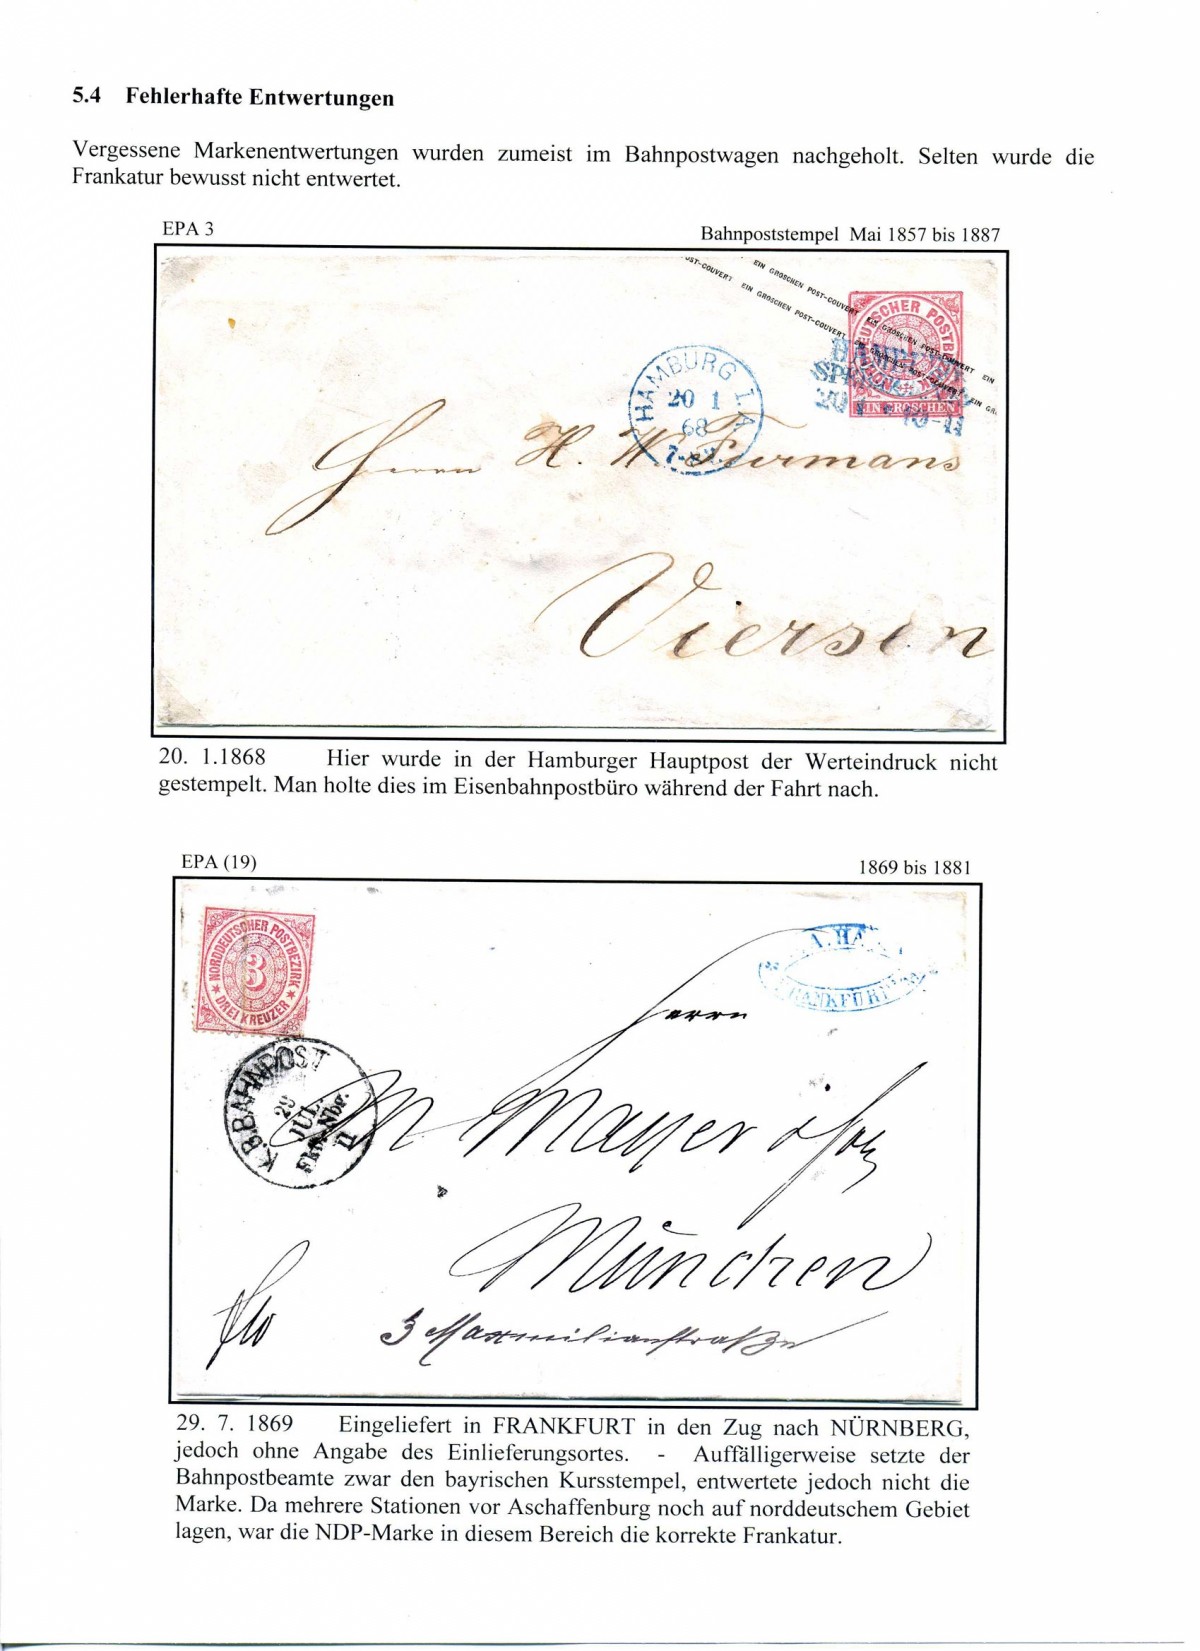 5.4 Fehlerhafte Entwertungen
Vergessene Markenentwertungen wurden zumeist im Bahnpostwagen nachgeholt. Selten wurde die
Frankatur bewusst nicht entwertet.
EPA 3
Bahnpoststempel Mai 1857 bis 1887
EIN GROSCHEN POST-COUVERT
EIN GROSCHEN POST-COUVERT
EIN GROSCHEN
HAMBURG I.A.
20 1
68
Herrn H. W. Furmans
Viersen
20. 1.1868 Hier wurde in der Hamburger Hauptpost der Werteindruck nicht
gestempelt. Man holte dies im Eisenbahnpostbüro während der Fahrt nach.
EPA (19)
1869 bis 1881
NORDDEUTSCHER POSTBEZIRK
3
DREI KREUZER
FRANKFURT
K.B.BAHNPOST
29
JUL
II
Herrn
Mayer
München
3 Maxmilianstraße
29. 7. 1869 Eingeliefert in FRANKFURT in den Zug nach NÜRNBERG,
jedoch ohne Angabe des Einlieferungsortes. - Auffälligerweise setzte der
Bahnpostbeamte zwar den bayrischen Kursstempel, entwertete jedoch nicht die
Marke. Da mehrere Stationen vor Aschaffenburg noch auf norddeutschem Gebiet
lagen, war die NDP-Marke in diesem Bereich die korrekte Frankatur.